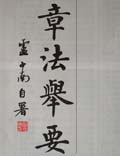 章法舉要
盧中南自署